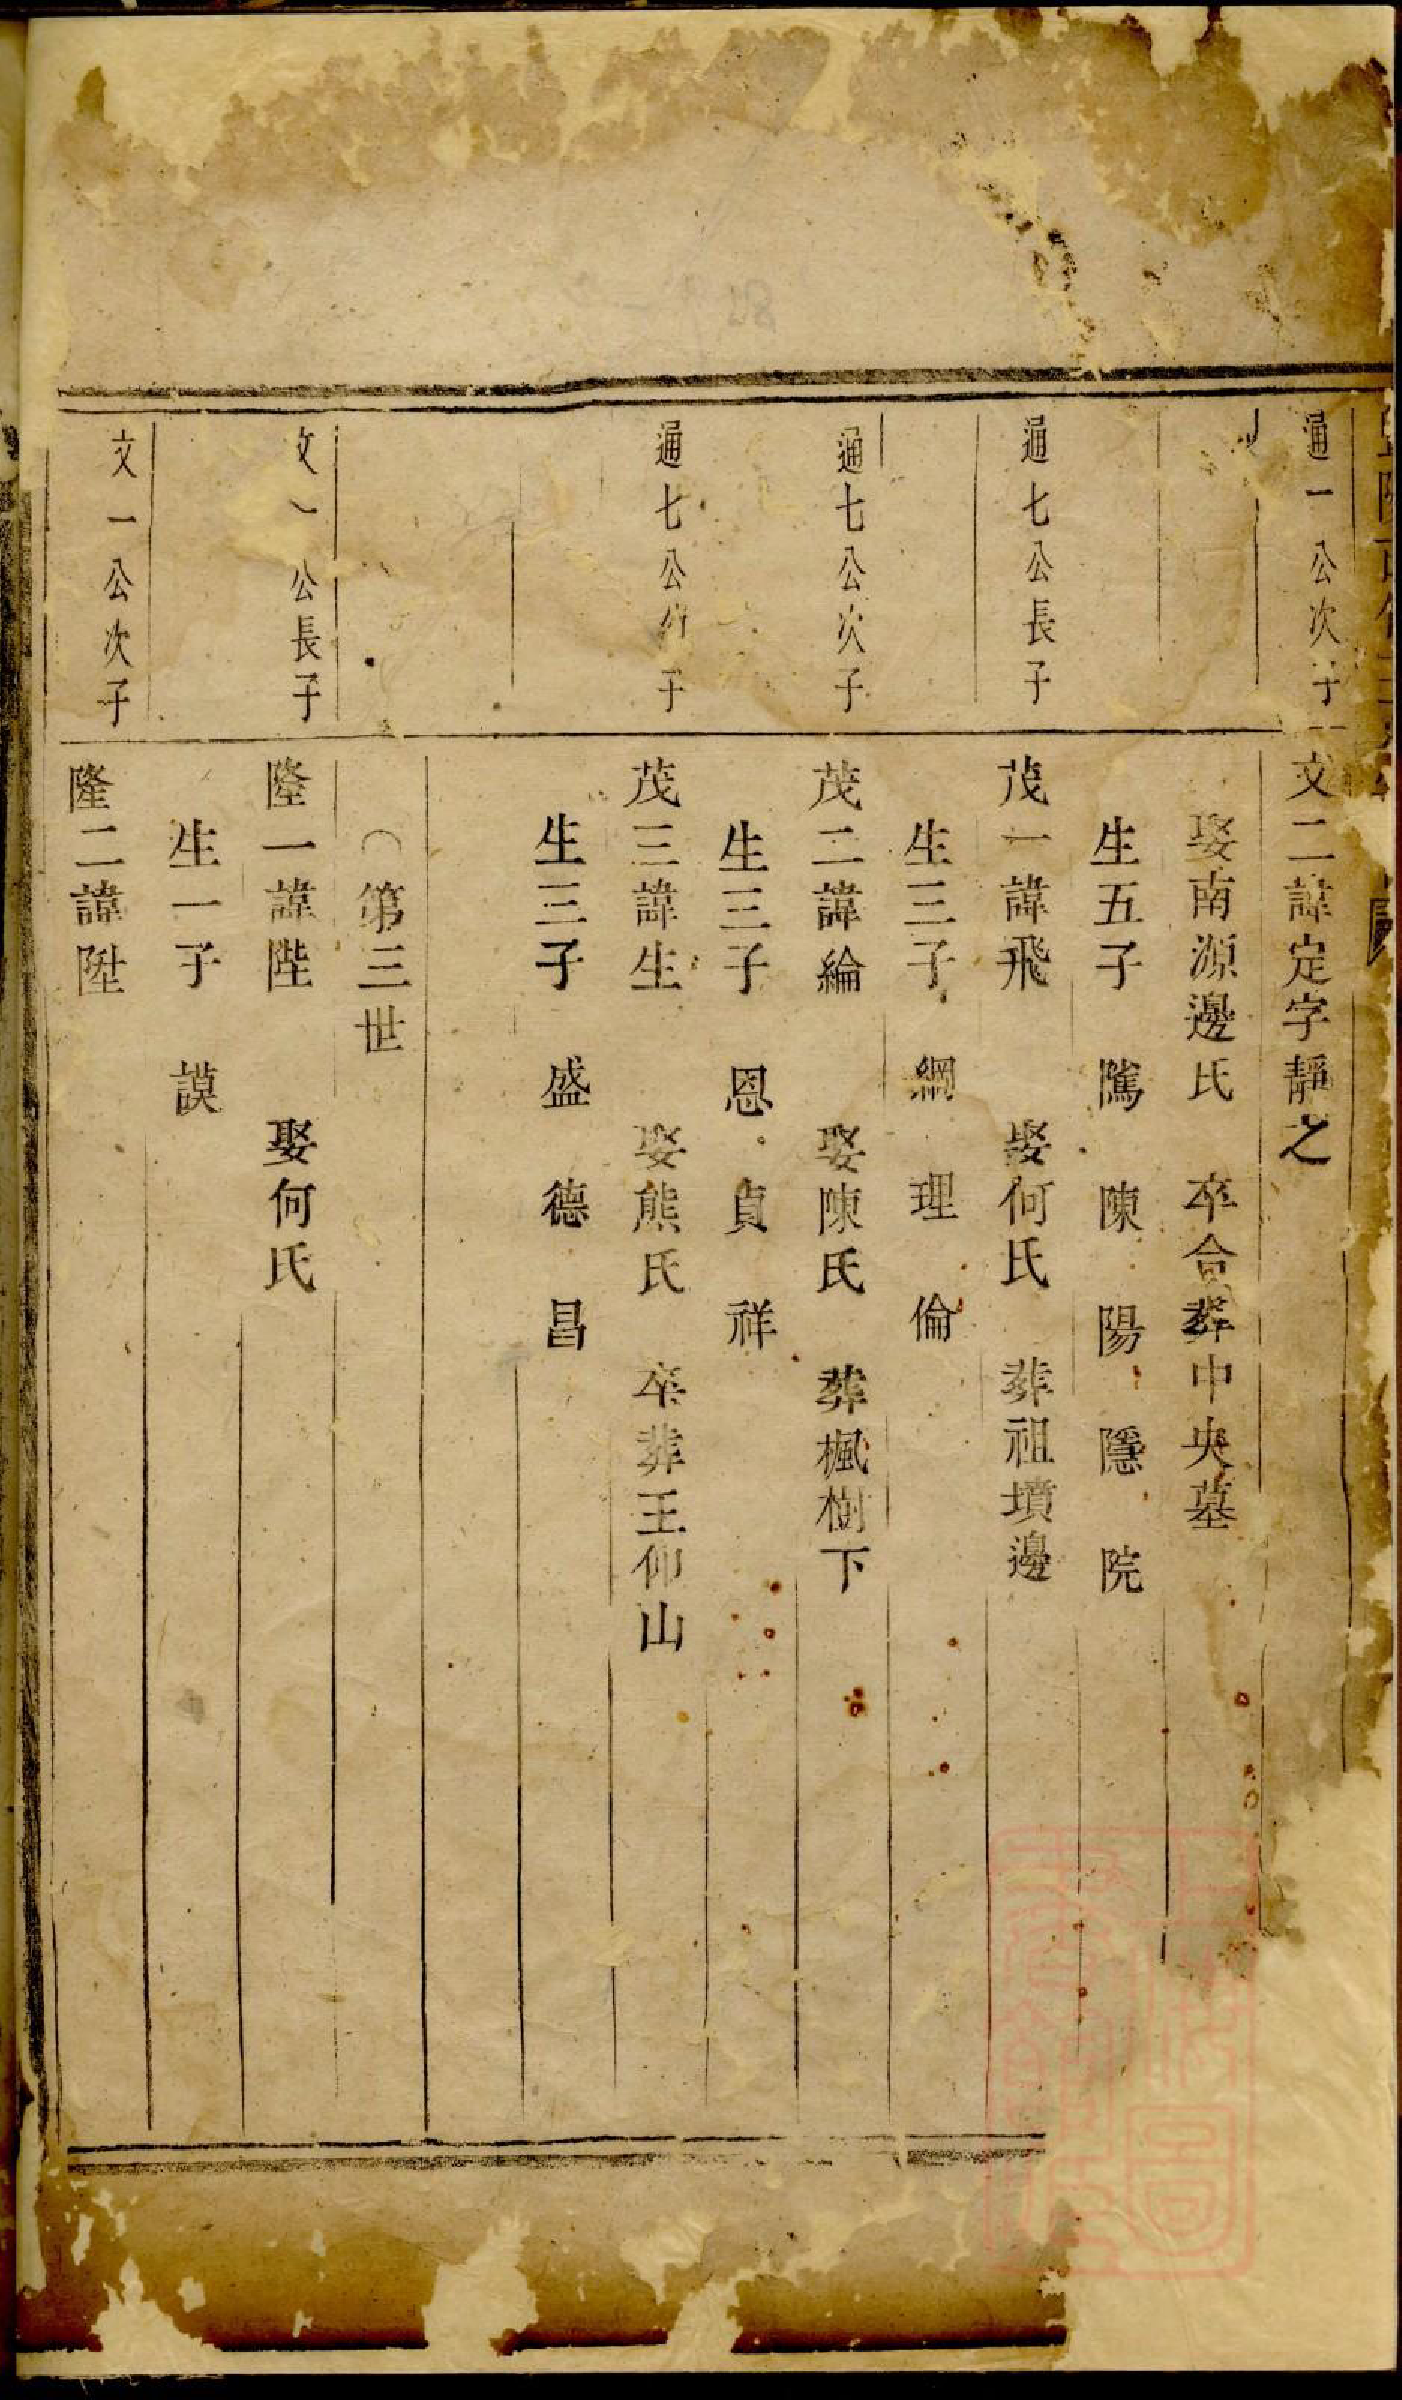 通一公次子
文二諱定字靜之
娶南源邊氏　卒合葬中央墓
生五子　隲　陳　陽　隱　院
通七公長子
茂一諱飛　娶何氏　葬祖墳邊
生三子　綱　理　倫
通七公次子
茂二諱綸　娶陳氏　葬楓樹下
生三子　恩　貞　祥
通七公　子
茂三諱生　娶熊氏　卒葬王仰山
生三子　盛　德　昌
第三世
文一公長子
隆一諱陛　娶何氏
生一子　謨
文一公次子
隆二諱陞